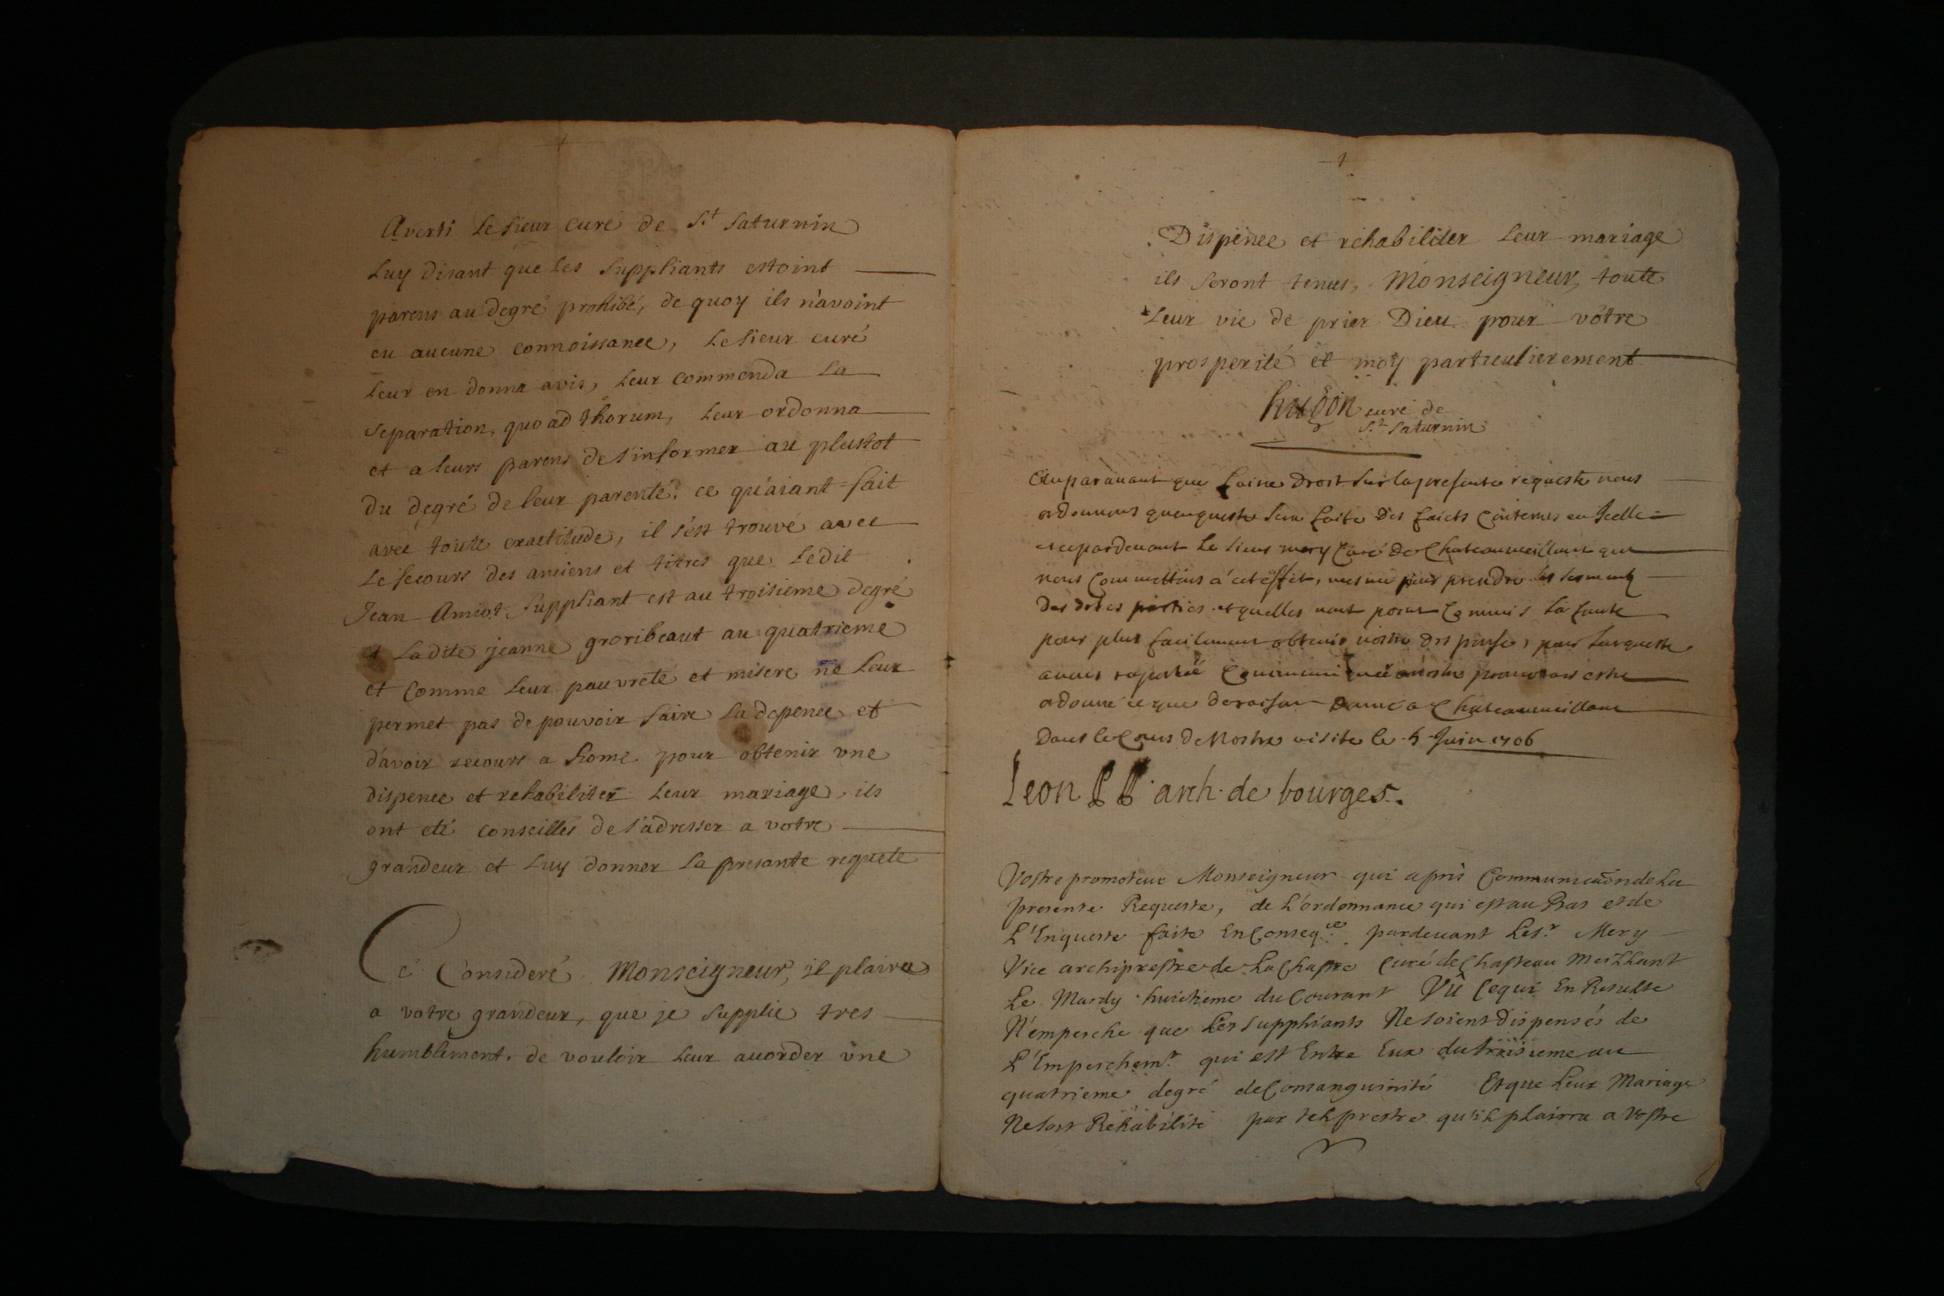 Averti le sieur curé de St Saturnin
luy disant que les suppliants estoint
parens au degré prohibé, de quoy ils n'avoint
eu aucune connoissance, le sieur curé
leur en donna avis, leur commenda la
separation, quo ad thorum, leur ordonna
et a leurs parens de s'informer au plustot
du degré de leur parenté: ce qu'aiant fait
avec toute exactitude, il s'est trouvé avec
le secours des anciens et titres que ledit
Jean Amiot suppliant est au troisieme degré
et ladite jeanne groribeaut au quatrieme
et comme leur pauvreté et misere ne leur
permet pas de pouvoir faire la depence et
d'avoir recours a Rome pour obtenir une
dispence et rehabiliter leur mariage, ils
ont eté conseillés de s'adresser a votre
grandeur et luy donner la presante requete
Ce Consideré Monseigneur, il plaira
a votre grandeur, que je supplie tres
humblement, de vouloir leur acorder une
Dispence et rehabiliter leur mariage
ils seront tenus, Monseigneur, toute
leur vie de prier Dieu pour votre
prosperité et moy particulierement
hugon curé de
St Saturnin
Auparavant que faire droit sur la presente requeste nous
ordonnons qu'enqueste sera faite des faicts contenus en Icelle
pardevant le sieur mery Curé de Chateaumeillant que
nous Commettons a cet effet, mesme pour prendre les serments
des dites parties et quelles nont point Commis la faute
pour plus facilement obtenir nostre dispense, pour l'enqueste
raportée Communiquée a nostre promoteur estre
ordonné ce que de raison Donné a Chateaumeillant
Dans le Cours de Nostre visite le 5 Juin 1706
Leon PP arch. de bourges.
Vostre promoteur Monseigneur qui apris Communicaon de la
presente Requeste, de L'ordonnance qui est au Bas et de
L'Enqueste faite En Conseqce pardevant Le Sr Mery
Vice archiprestre de La Chastre Curé de Chasteau Meillant
Le Mardy huictieme du Courant Vû Ce qui En Resulte
N'empesche que Les suppliants Ne soient dispensés de
L'Empeschemt qui est Entre Eux du troisieme au
quatrieme degré de Consanguinité Et que Leur Mariage
Ne soit Rehabilité par tel prestre qu'il plairra a Vostre